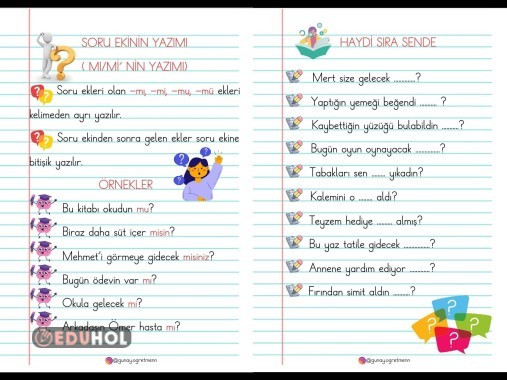 SORU EKİNİN YAZIMI
( MI/Mİ' NİN YAZIMI)
Soru ekleri olan –mı, –mi, –mu, –mü ekleri
kelimeden ayrı yazılır.
Soru ekinden sonra gelen ekler soru ekine
bitişik yazılır.
ÖRNEKLER
Bu kitabı okudun mu?
Biraz daha süt içer misin?
Mehmet'i görmeye gidecek misiniz?
Bugün ödevin var mı?
Okula gelecek mi?
Arkadaşın Ömer hasta mı?
EDUHOL
@gunay.ogretmenn
HAYDİ SIRA SENDE
Mert size gelecek ...........?
Yaptığın yemeği beğendi ......... ?
Kaybettiğin yüzüğü bulabildin .........?
Bugün oyun oynayacak .............?
Tabakları sen ....... yıkadın?
Kalemini o ....... aldı?
Teyzem hediye ........ almış?
Bu yaz tatile gidecek .............?
Annene yardım ediyor ...........?
Fırından simit aldın .........?
@gunay.ogretmenn